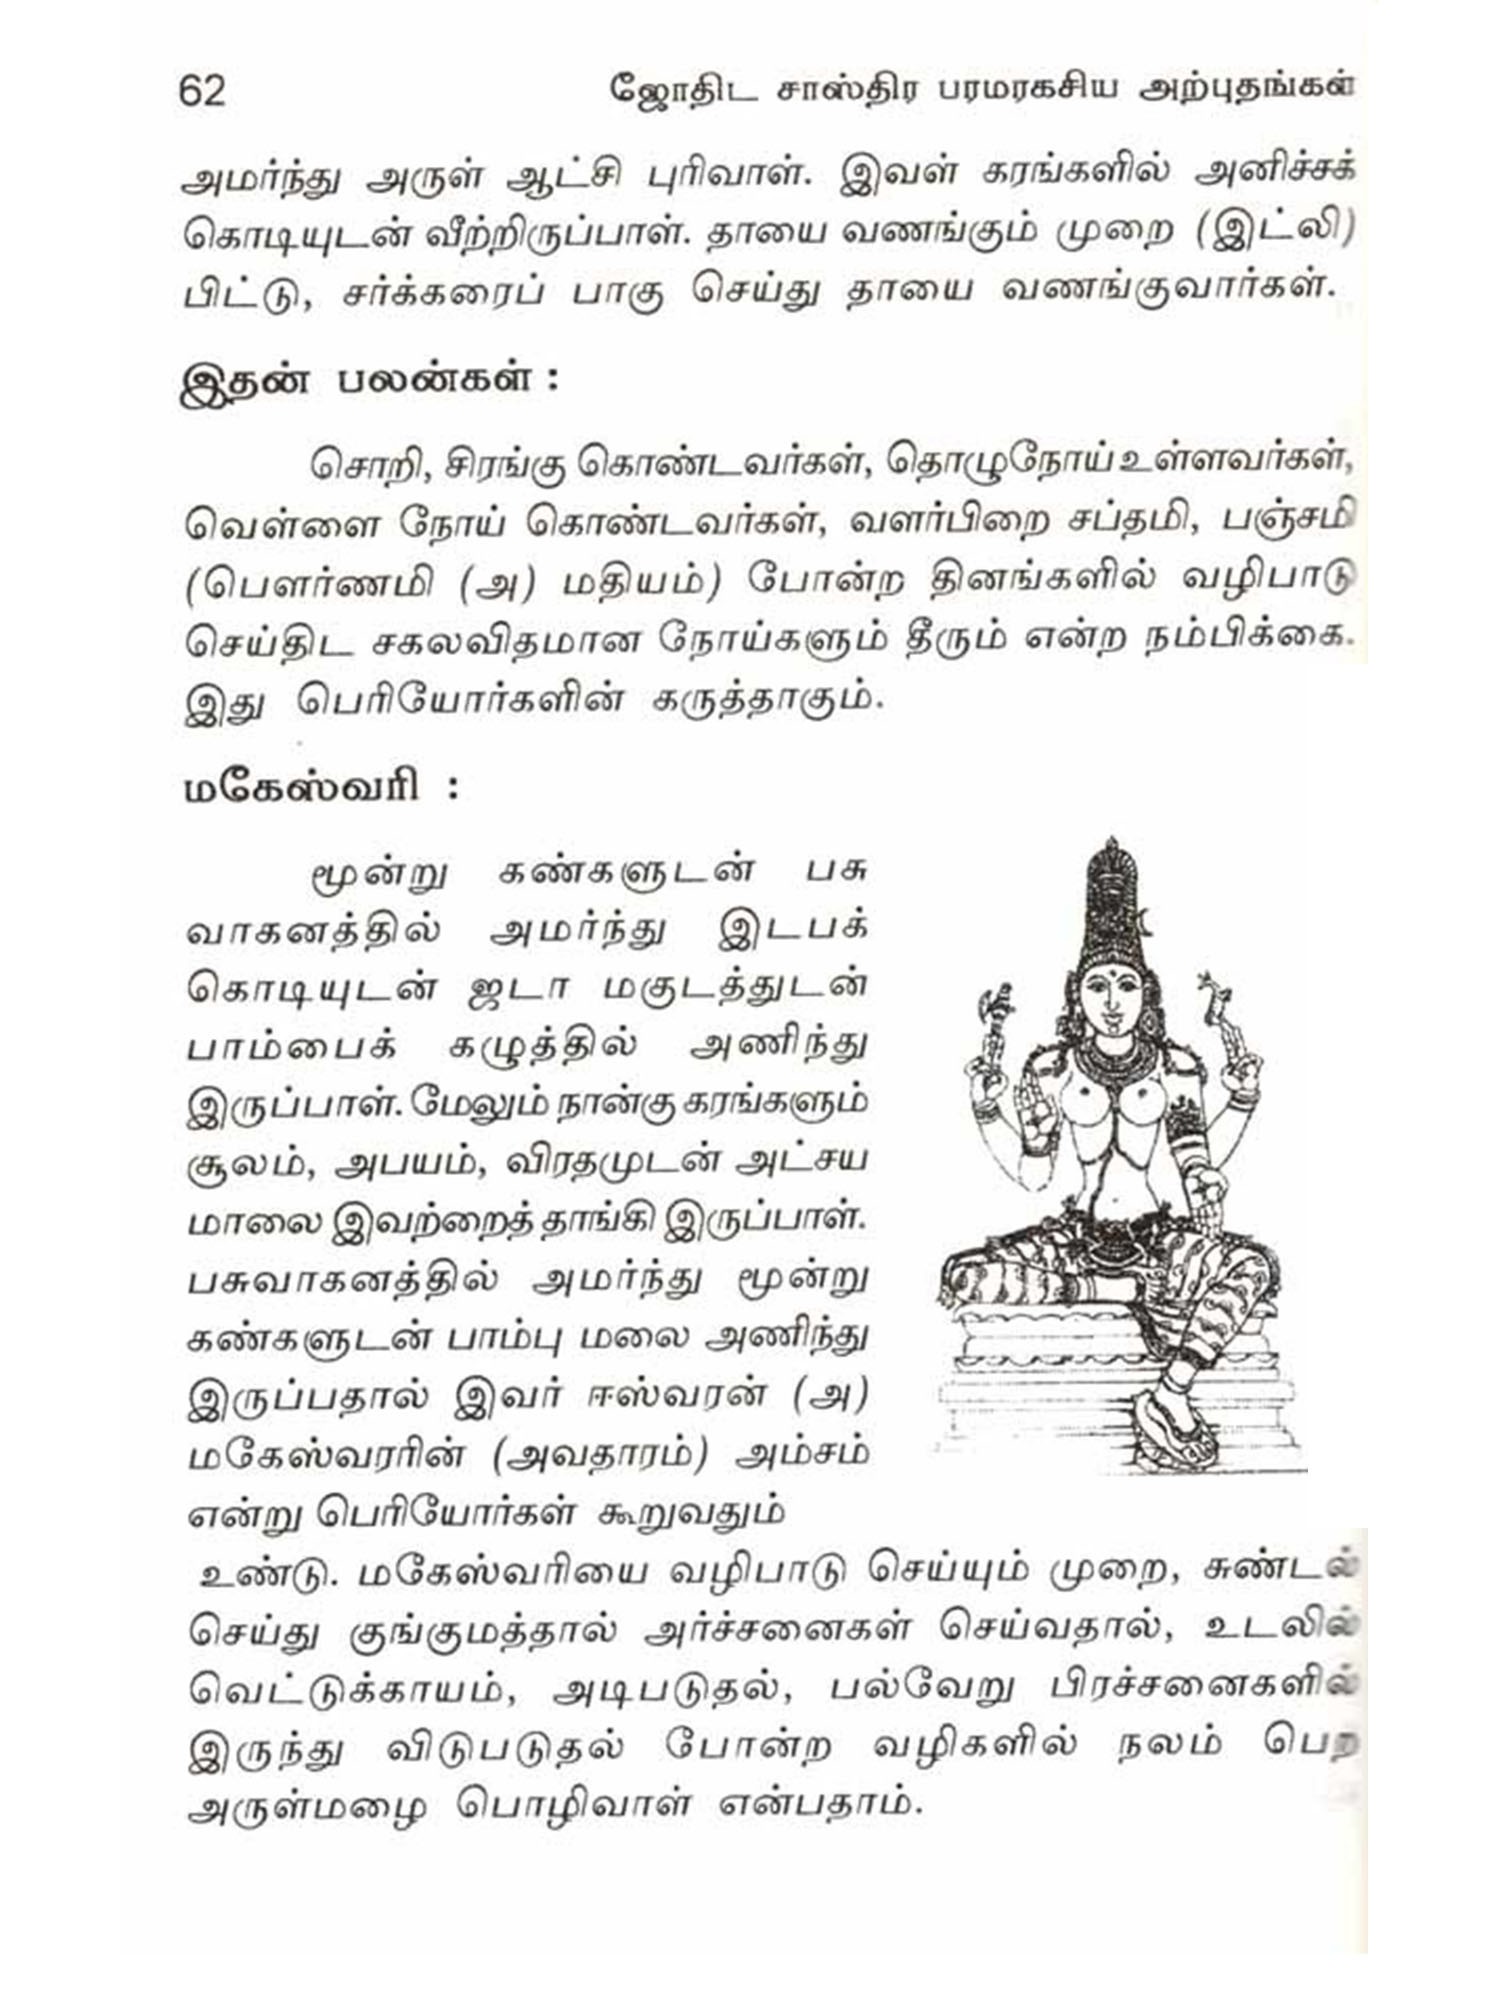 62 ஜோதிட சாஸ்திர பரமரகசிய அற்புதங்கள்
அமர்ந்து அருள் ஆட்சி புரிவாள். இவள் கரங்களில் அனிச்சக்
கொடியுடன் வீற்றிருப்பாள். தாயை வணங்கும் முறை (இட்லி)
பிட்டு, சர்க்கரைப் பாகு செய்து தாயை வணங்குவார்கள்.
இதன் பலன்கள் :
சொறி, சிரங்கு கொண்டவர்கள், தொழுநோய் உள்ளவர்கள்,
வெள்ளை நோய் கொண்டவர்கள், வளர்பிறை சப்தமி, பஞ்சமி
(பௌர்ணமி (அ) மதியம்) போன்ற தினங்களில் வழிபாடு
செய்திட சகலவிதமான நோய்களும் தீரும் என்ற நம்பிக்கை.
இது பெரியோர்களின் கருத்தாகும்.
மகேஸ்வரி :
மூன்று கண்களுடன் பசு
வாகனத்தில் அமர்ந்து இடபக்
கொடியுடன் ஜடா மகுடத்துடன்
பாம்பைக் கழுத்தில் அணிந்து
இருப்பாள். மேலும் நான்கு கரங்களும்
சூலம், அபயம், விரதமுடன் அட்சய
மாலை இவற்றைத் தாங்கி இருப்பாள்.
பசுவாகனத்தில் அமர்ந்து மூன்று
கண்களுடன் பாம்பு மலை அணிந்து
இருப்பதால் இவர் ஈஸ்வரன் (அ)
மகேஸ்வரரின் (அவதாரம்) அம்சம்
என்று பெரியோர்கள் கூறுவதும்
உண்டு. மகேஸ்வரியை வழிபாடு செய்யும் முறை, சுண்டல்
செய்து குங்குமத்தால் அர்ச்சனைகள் செய்வதால், உடலில்
வெட்டுக்காயம், அடிபடுதல், பல்வேறு பிரச்சனைகளில்
இருந்து விடுபடுதல் போன்ற வழிகளில் நலம் பெற
அருள்மழை பொழிவாள் என்பதாம்.